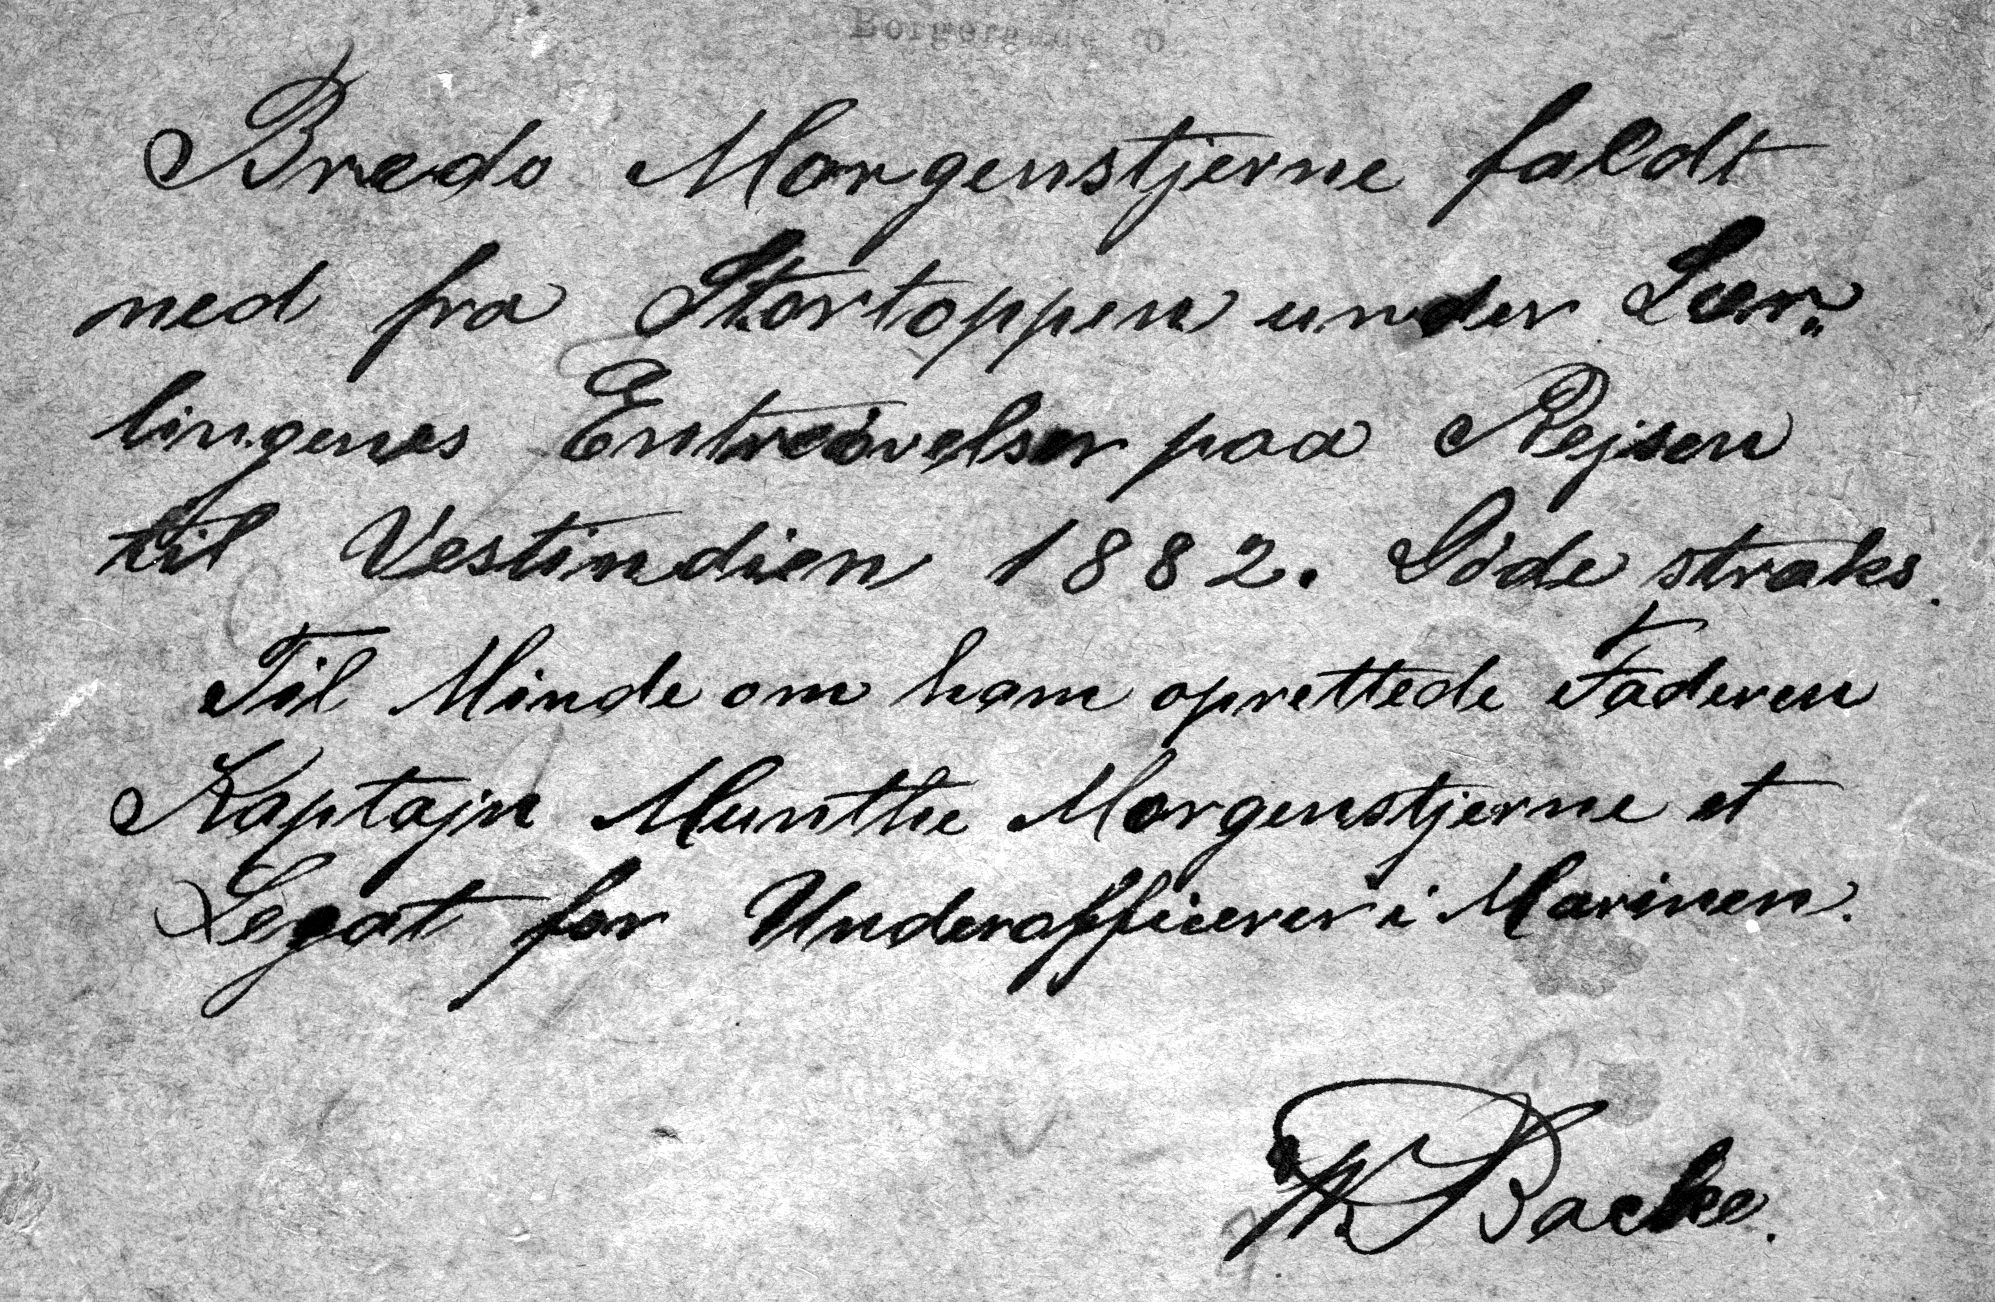 Bredo Morgenstjerne faldt
ned fra Stortoppen under Lær„
lingenes Entreøvelser paa Rejsen
til Vestindien 1882. Døde straks.
Til Minde om ham oprettede Faderen
Kaptajn Munthe Morgenstjerne et
Legat for Underofficerer i Marinen.
Backe.